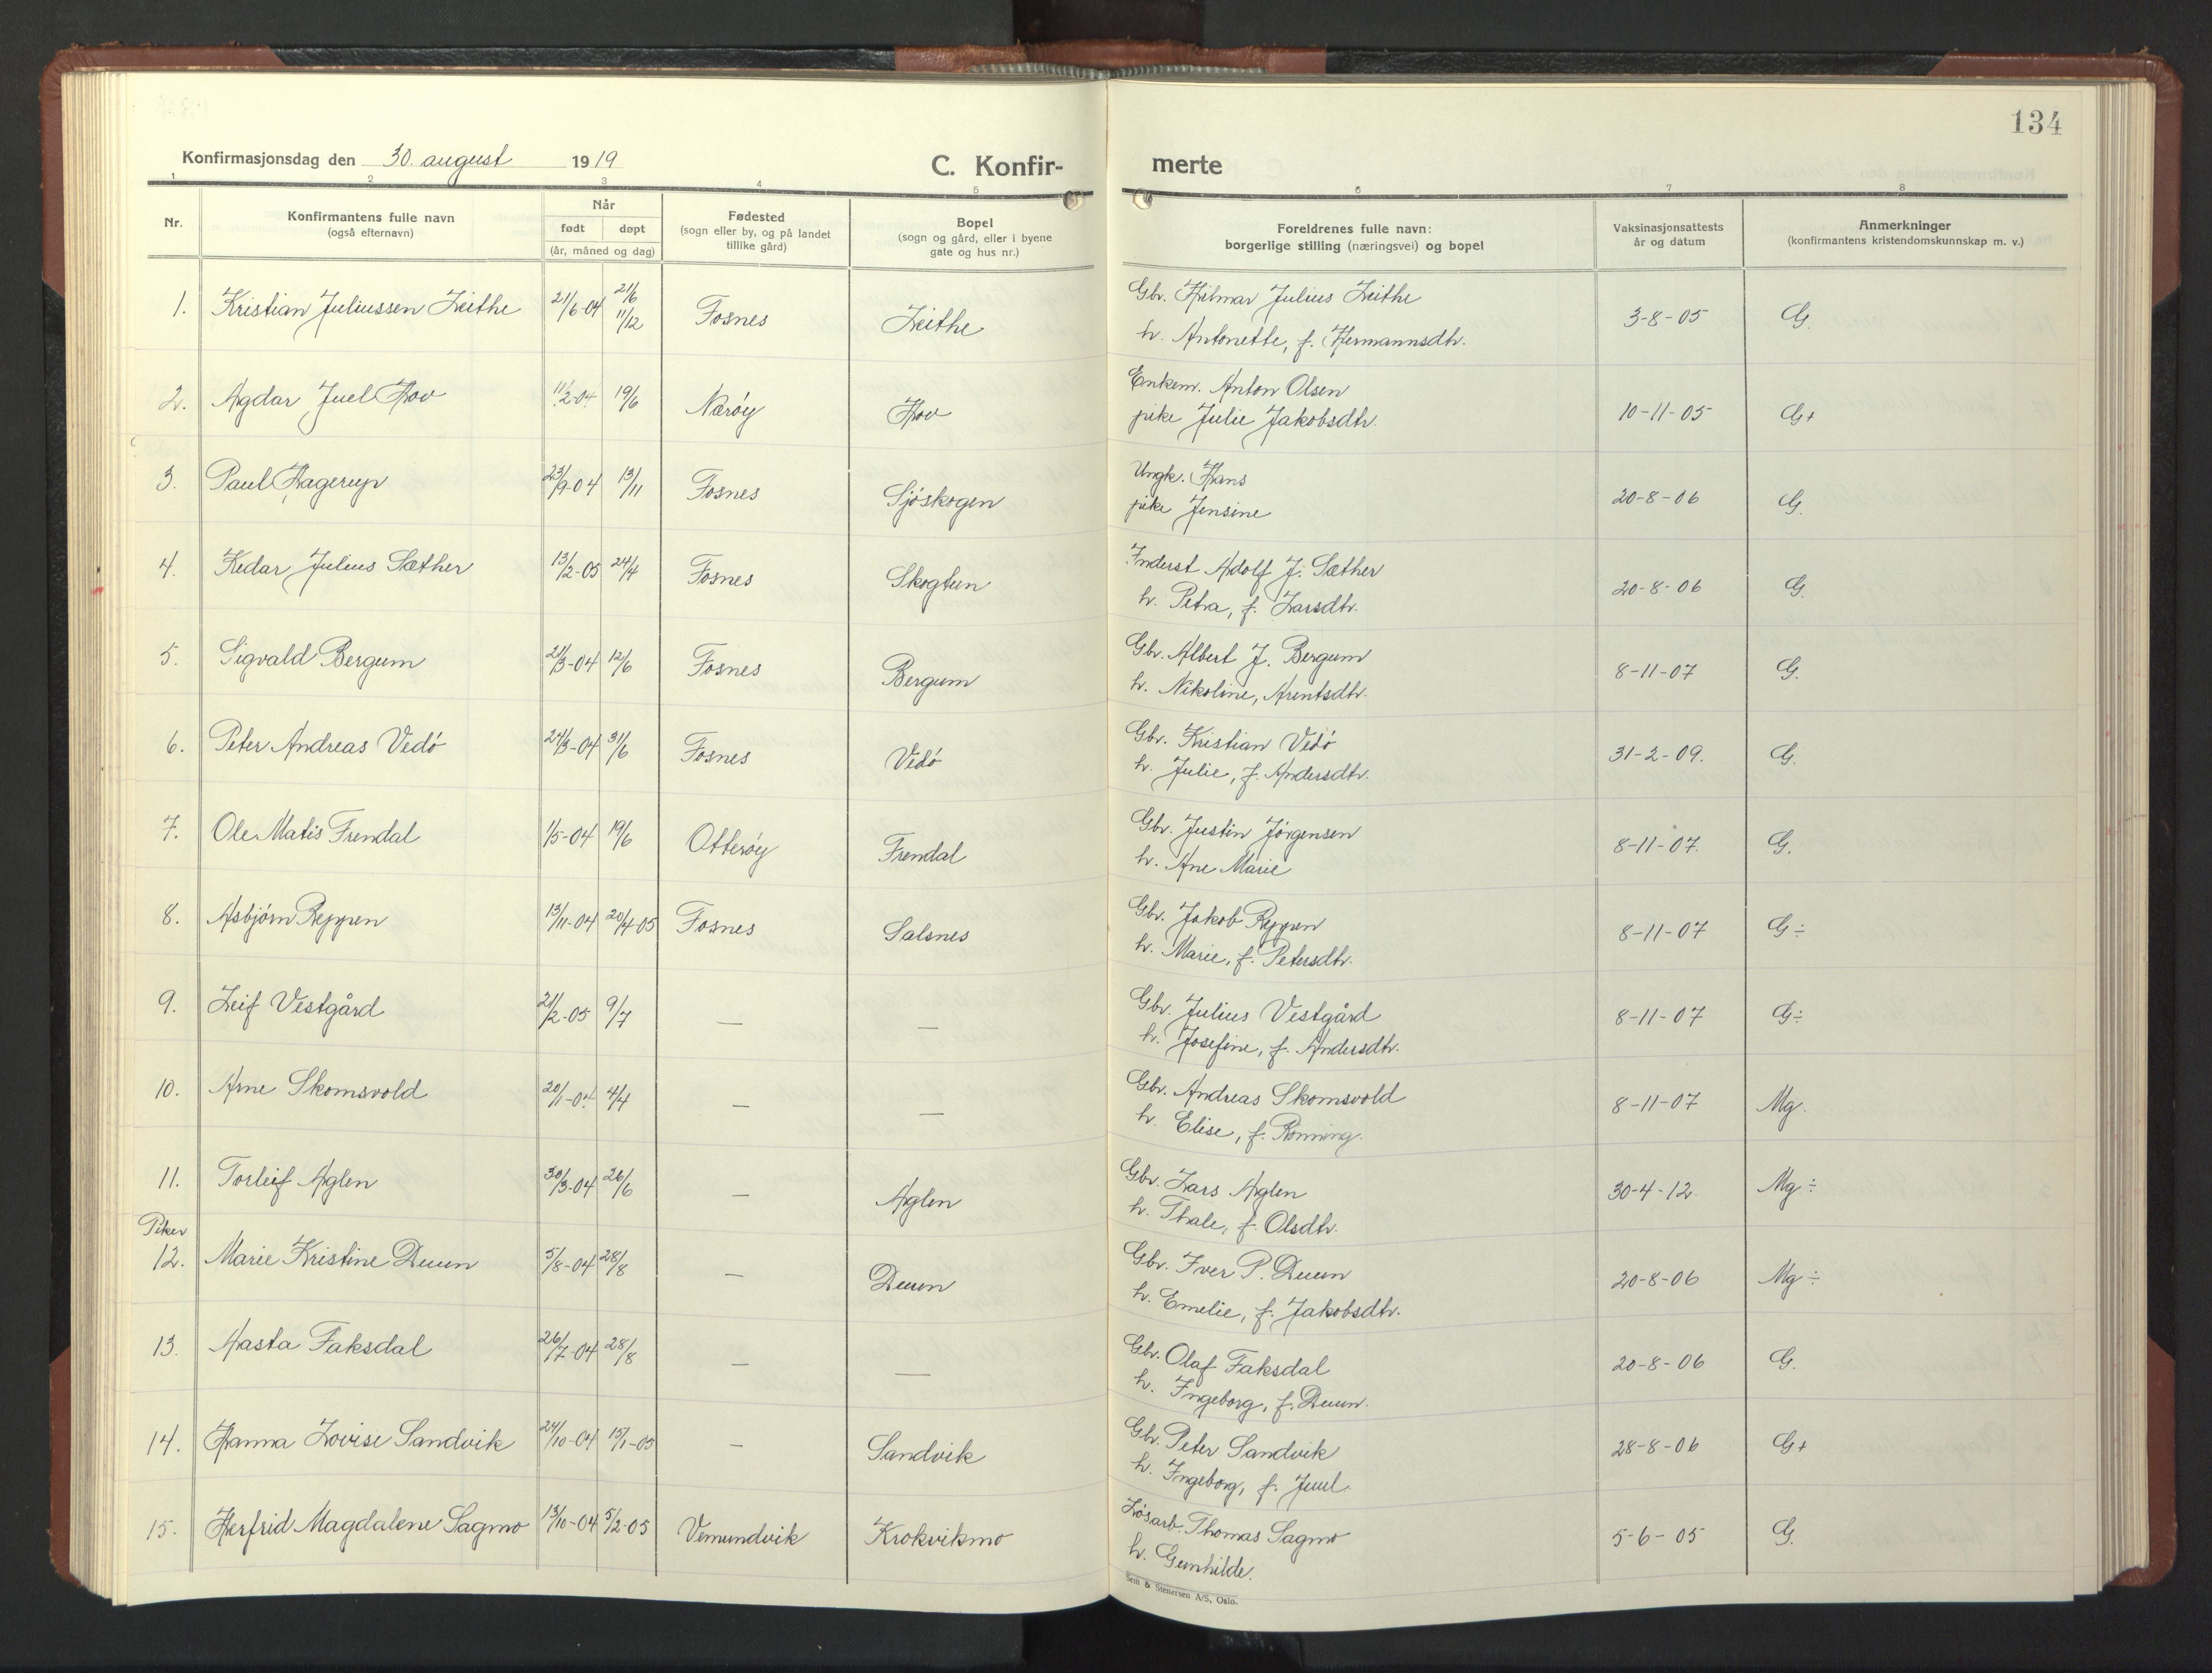 134
Konfirmasjonsdag den 30. august 1919
C. Konfir-
merte
1 2 3 4 5 6 7 8
Nr.
Konfirmantens fulle navn
(også efternavn)
Når
født døpt
(år, måned og dag)
Fødested
(sogn eller by, og på landet
tillike gård)
Bopel
(sogn og gård, eller i byene
gate og hus nr.)
Foreldrenes fulle navn:
borgerlige stilling (næringsvei) og bopel
Vaksinasjonsattests
år og datum
Anmerkninger
(konfirmantens kristendomskunnskap m. v.)
1. Kristian Juliussen Leithe 21/6-04 21/6 11/12 Fosnes Leithe Gbr. Hilmar Julius Leithe 3-8-05 G.
h. Antonette, f. Hermannsdtr.
2. Agdar Juel Hov 11/2-04 19/6 Nærøy Hov Enkem. Anton Olsen 10-11-05 G+
pike Julie Jakobsdtr.
3. Paul Hagerup 23/9-04 13/11 Fosnes Sjöskogen Ungk. Hans 20-8-06 G.
pike Jensine
4. Kedar Julius Sæther 13/2-05 24/4 Fosnes Skogtun Inderst Adolf J. Sæther 20-8-06 G.
h. Petra, f. Larsdtr.
5. Sigvald Bergum 21/3-04 12/6 Fosnes Bergum Gbr. Albert J. Bergum 8-11-07 G.
h. Nikoline, Arentsdtr.
6. Peter Andreas Vedö 24/3-04 31/6 Fosnes Vedö Gbr. Kristian Vedö 31-2-09. G.
h. Julie, f. Andersdtr.
7. Ole Matis Frendal 1/5-04 19/6 Otterøy Frendal Gbr. Justin Jörgensen 8-11-07. G.
h. Ane Marie
8. Asbjörn Reppen 13/11-04 20/4-05 Fosnes Salsnes Gbr. Jakob Reppen 8-11-07 G÷
h. Marie, f. Petersdtr.
9. Leif Vestgård 21/2-05 9/7 — — Gbr. Julius Vestgård 8-11-07 G÷
h. Josefine, f. Andersdtr.
10. Arne Skomsvold 20/1-04 4/4 — — Gbr. Andreas Skomsvold 8-11-07 Mg.
h. Elise, f. Rönning.
11. Torleif Aglen 30/3-04 26/6 — Aglen Gbr. Lars Aglen 30-4-12. Mg÷
h. Thale, f. Olsdtr.
Piker
12. Marie Kristine Duun 5/8-04 28/8 — Duun Gbr. Iver P. Duun 20-8-06 Mg÷
h. Emelie, f. Jakobsdtr.
13. Aasta Faksdal 26/7-04 28/8 — — Gbr. Olaf Faksdal 20-8-06 G.
h. Ingeborg, f. Duun.
14. Hanna Lovise Sandvik 24/10-04 15/1-05 — Sandvik Gbr. Peter Sandvik 28-8-06 G+
h. Ingeborg, f. Juul.
15. Herfrid Magdalene Sagmo 13/10-04 5/2-05 Vemundvik Krokvikmo Lösarb. Thomas Sagmo 5-6-05 G.
h. Gunhilde.
Sem & Stenersen A/S, Oslo.